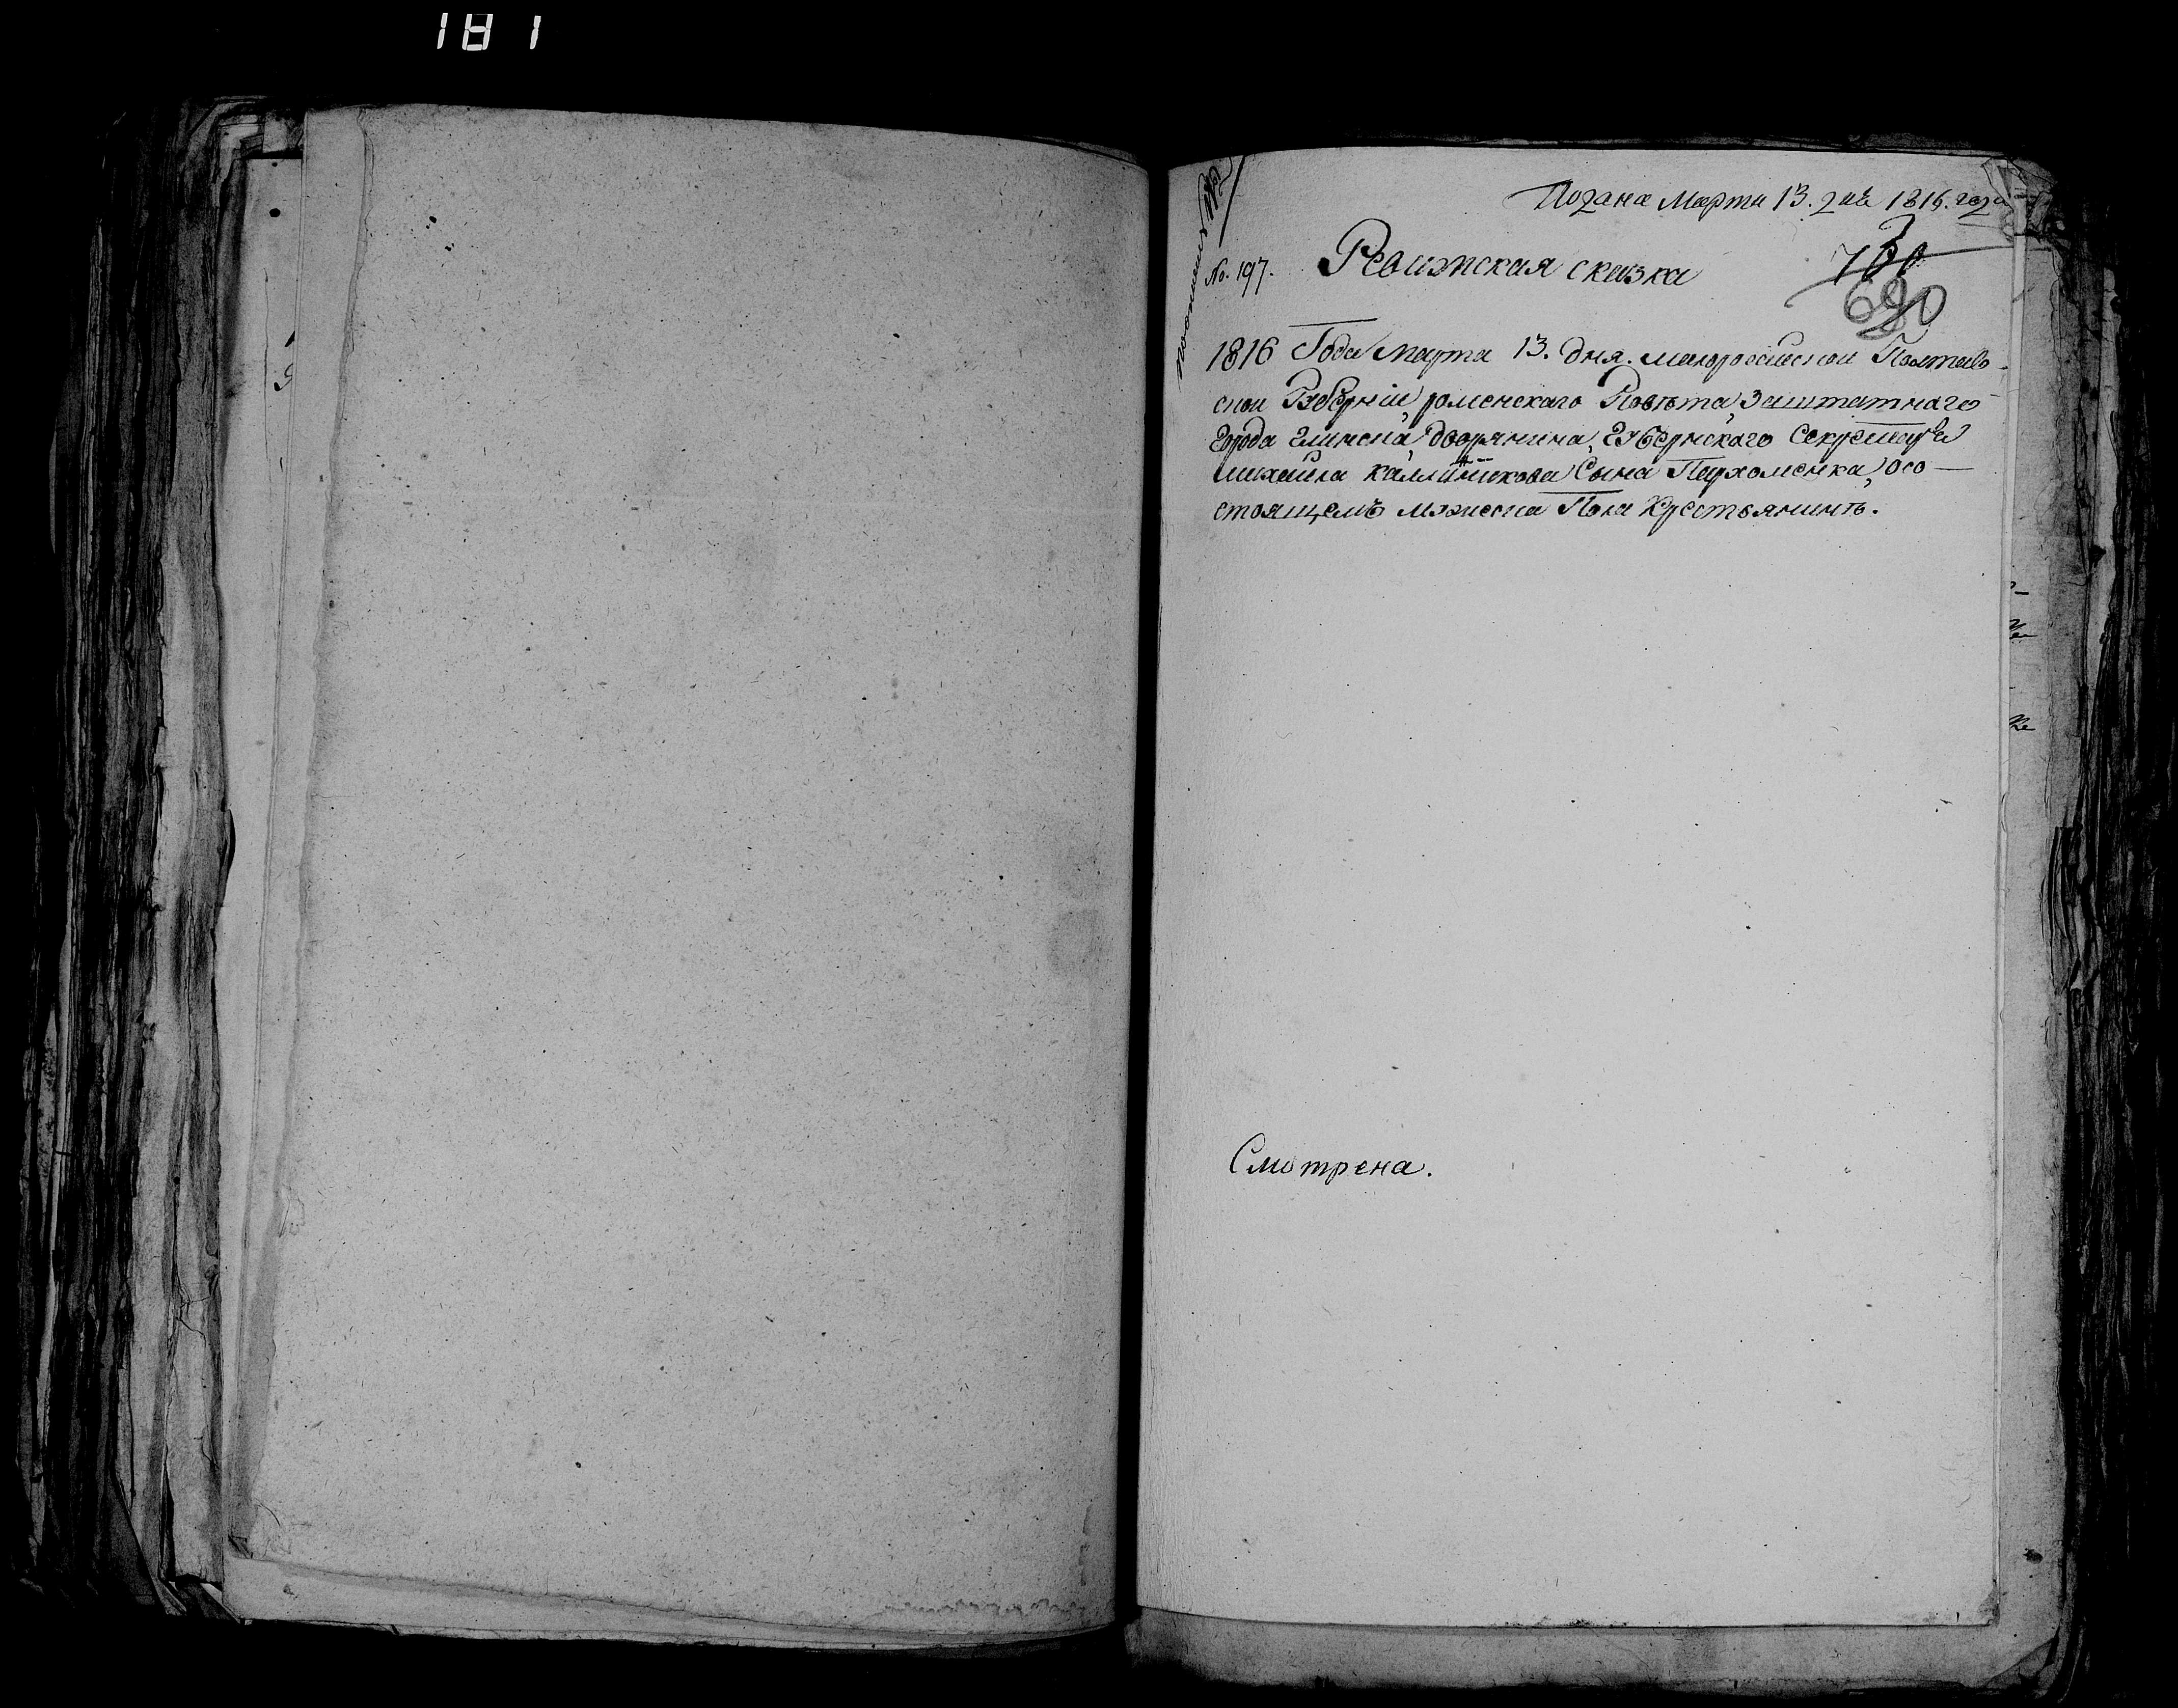 181
Подана Марта 13. дня 1816. года
No. 197. Ревижская сказка
700
690
1816 Года Марта 13. дня. малороссийской Полтав-
ской Губерніи, роменскаго Повѣта, Заштатнаго
города глинска, дворянина, губернского Секретаря
михайла каллиникова Сына Пархоменка, о со-
стоящемъ мужеска Пола Крестьянинѣ.
Смотрена.